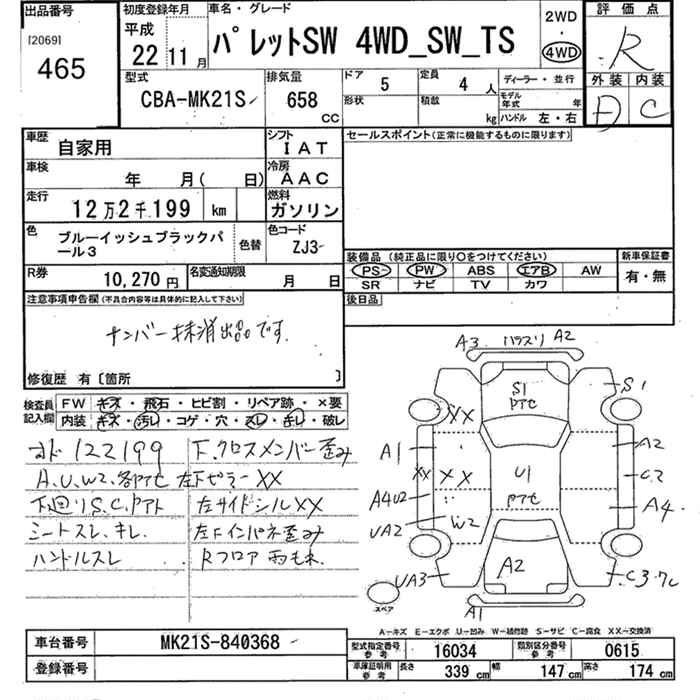 出品番号
[2069]
465
初度登録年月
平成
22年
11月
車名・グレード
パレットSW 4WD_SW_TS
2WD
・
4WD
評価点
R
外装 内装
D C
型式
CBA-MK21S
排気量
658 CC
ドア 5
定員 4人
形状
積載 kg
ディーラー・並行
モデル年式 年
ハンドル 左・右
車歴
自家用
シフト
IAT
セールスポイント(正常に機能するものに限ります)
車検
年 月( 日)
冷房
AAC
走行
12万2千199 km
燃料
ガソリン
色
ブルーイッシュブラックパール3
色替
色コード
ZJ3
装備品 (純正品に限り○をつけてください)
PS PW ABS エアB AW
SR ナビ TV カワ
新車保証書
有・無
R券
10,270円
名変通知期限
月 日
後日品
注意事項申告欄(不具合内容等は具体的に記入して下さい)
ナンバー抹消出品です.
修復歴 有〔箇所 〕
検査員記入欄
FW キズ・飛石・ヒビ割・リペア跡・×要
内装 キズ・汚レ・コゲ・穴・スレ・キレ・破レ
オド122199
A.U.W2.各PアセE
下廻りS.C.Pアト
シートスレ.キレ.
ハンドルスレ
下.クロスメンバー歪み
左下ピラーXX
左サイドシルXX
左下インパネ歪み
Rフロア雨もれ.
A3 バラスリ A2
S1
PアセE
S1
XX
A1
A2
XX XX
U1
PアセE
C2
A4U2
A4
UA2
W2
A2
UA3
C3.7C
スペア
A1
A-キズ E-エクボ U-凹み W-補修跡 S-サビ C-腐食 XX-交換済
車台番号
MK21S-840368
登録番号
型式指定番号
参考
16034
類別区分番号
参考
0615
車庫証明用
参考
長さ 339cm
幅 147cm
高さ 174cm